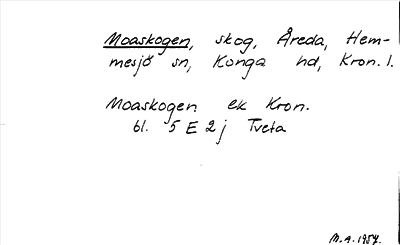 Moaskogen, skog, Åreda, Hem-
mesjö sn, Konga hd, Kron. l.
Moaskogen ek Kron.
bl. 5 E 2 j Tveta
M.A. 1957.